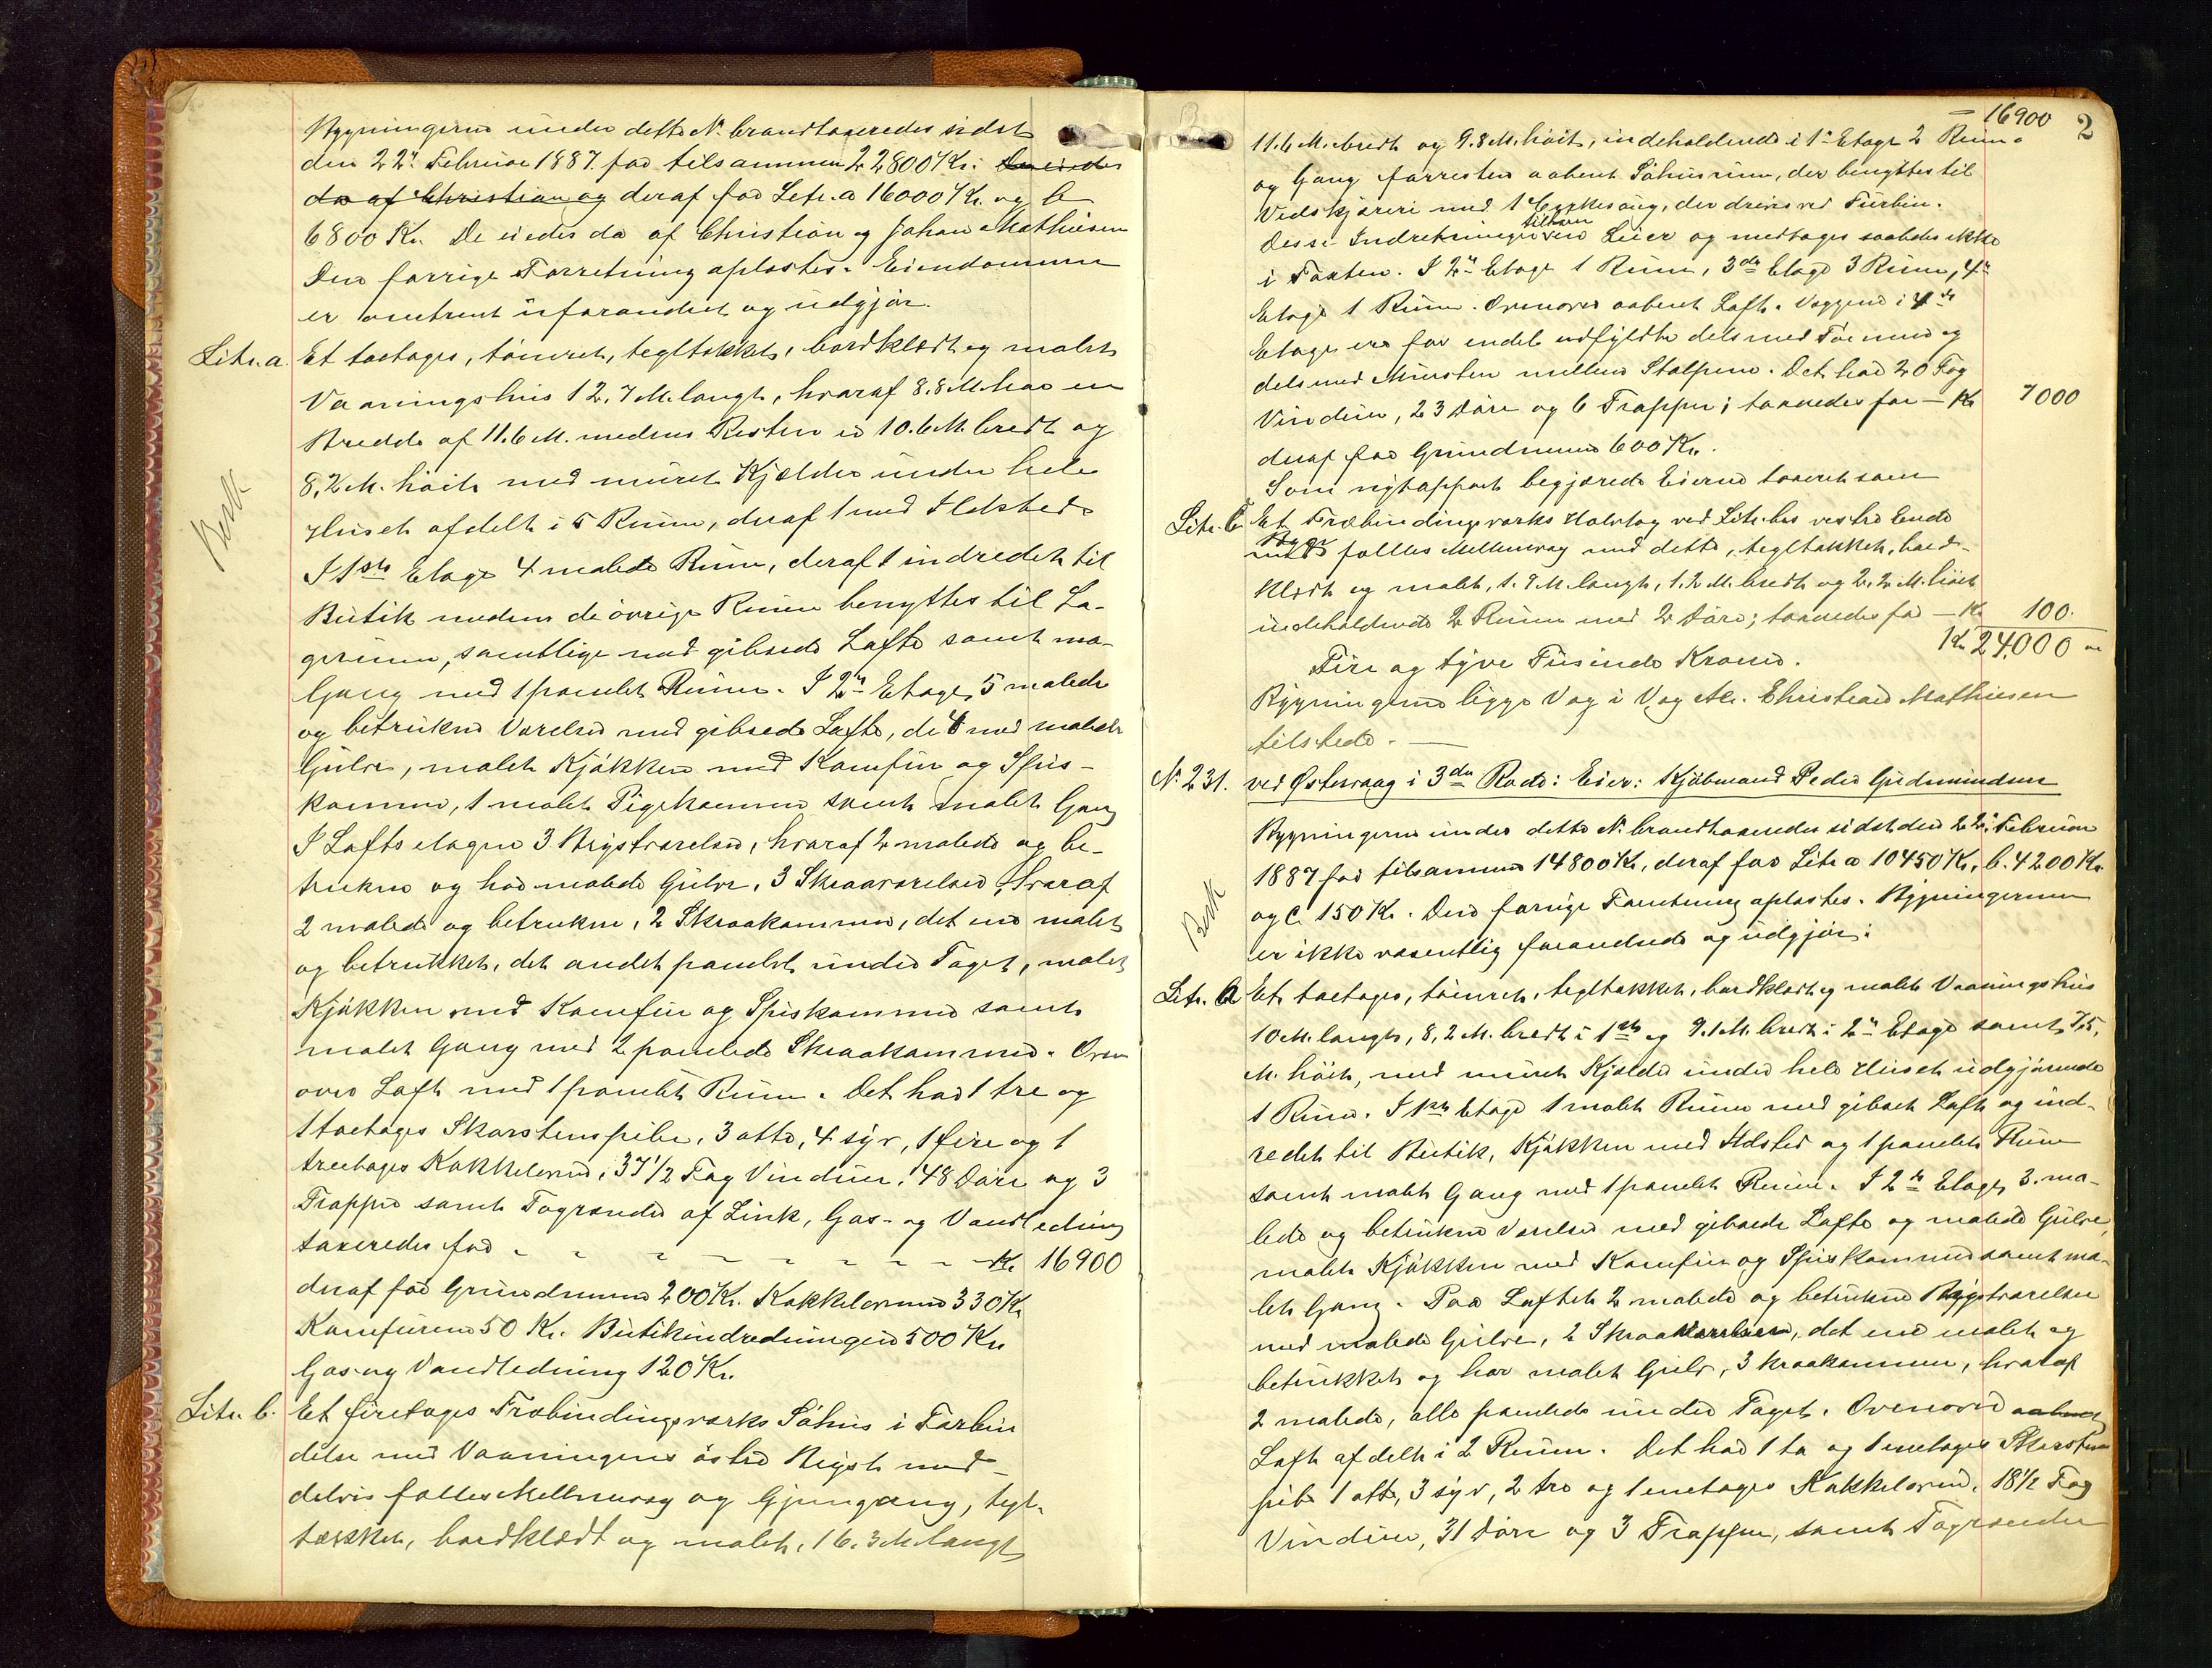 Bygningerne under dette N. brandtaxeredes sidst
den 22de Februar 1887 for tilsammen 22800 Kr. De eiedes
da af Christian og deraf for Litr. a 16000 Kr. og b
6800 Kr. De eiedes da af Christian og Johan Mathiesen
Den forrige Forretning oplæstes. Eiendommen
er omtrent uforandret og udgjør
Litr. a. Et toetages, tømret, tegltækket, bordklædt og malet
Vaaningshus 12,7 M. langt, hvoraf 8.8 M. har en
Bredde af 11.6 M. medens Resten er 10.6 M. bredt og
8,2 M. høit med muret Kjælder under hele
Huset afdelt i 5 Rum, deraf 1 med Ildsted.
Besk
I 1ste Etage 4 malede Rum, deraf 1 indredet til
Butik medens de øvrige Rum benyttes til La-
gerrum, samtlige med gibsede Lofte samt ma-
Gang med 1 panelet Rum. I 2den Etage 5 malede
og betrukne Værelser med gibsede Lofte, de 4 med malede
Gulve, malet Kjøkken med Komfur og Spis-
kammer, 1 malet Pigekammer samt malet Gang
I Loftsetagen 3 Brystværelser, hvoraf 2 malede og be-
trukne og har malede Gulve, 3 Skraaværelser, hvoraf
2 malede og betrukne, 2 Skraakammer, det ene malet
og betrukket, det andet panelet under Taget, malet
Kjøkken med Komfur og Spiskammer samt
malet Gang med 2 panelede Skraakammer. Oven
over Loft med 1 panelet Rum. Det har 1 tre og
1 toetages Skorstenspibe, 3 otte, 4 syv, 1 fire og 1
treetages Kakkelovne, 37 1/2 Fag Vinduer, 48 Døre og 3
Trapper samt Tagrender af Zink, Gas- og Vandledning
taxeredes for - - - - - - - - Kr. 16900
deraf for Grundmuren 200 Kr. Kakkelovnene 330 Kr.
Komfurene 50 Kr. Butikindredningen 500 Kr.
Gas og Vandledning 120 Kr.
Litr. b. Et firetages Træbindingsværks Søhus i Forbin
delse med Vaaningens østre Bryst med
delvis fælles Mellemvæg og Gjengang, tegl-
tækket, bordklædt og malet, 16.3 M. langt
= 16900 2
11.6 M. bredt og 9.8 M. høit, indeholdende i 1ste Etage 2 Rum
og Gang forresten aabent Søhusrum, der benyttes til
Vedskjæreri med 1 Cirkelsaug, der drives ved Turbin.
tilhører
Disse Indretninger Leier og medtages saaledes ikke
i Taxten. I 2den Etage 1 Rum, 3die Etage 3 Rum, 4de
Etage 1 Rum. Ovenover aabent Loft. Væggene i 4de
Etage er for endel udfyldte dels med Tømmer og
dels med Mursten mellem Stolperne. Det har 20 Fag
Vinduer, 23 Døre og 6 Trapper; taxeredes for - Kr. 7000
deraf for Grundmuren 600 Kr.
Som nyt opført begjærede Eierne taxeret som
Litr. C Et Træbindingsværks Halvtag ved Litr. bs vestre Ende
med fælles Mellemvæg med dette, tegltækket, bord-
klædt og malet, 1.7 M. langt, 1.2 M. bredt og 2,2 M. høit
indeholdende 2 Rum med 2 Døre; taxeredes for - Kr. 100.
Kr. 24,000
Fire og tyve Tusinde Kroner.
Bygningerne ligge Væg i Væg. Christian Mathiesen
tilstede.
N. 231. ved Østervaag i 3die Rode: Eier: Kjøbmand Peder Gudmundsen
Bygningerne under dette N. brandtaxeredes sidst den 22de Februar
1887 for tilsammen 14800 Kr., deraf for Litr. a 10450 Kr., b. 4200 Kr.
og C. 150 Kr. Den forrige Forretning oplæstes. Bygningerne
Besk
er ikke væsentlig forandrede og udgjør:
Litr. a Et toetages, tømret, tegltækket, bordklædt og malet Vaaningshus
10 M. langt, 8,2 M. bredt i 1ste og 9.1 M. bredt i 2den Etage samt 7,5
M. høit, med muret Kjælder under hele Huset udgjørende
1 Rum. I 1ste Etage 1 malet Rum med gibset Loft og ind-
redet til Butik, Kjøkken med Ildsted og 1 panelet Rum
samt malet Gang med 1 panelet Rum. I 2den Etage 3 ma-
lede og betrukne Værelser med gibsede Lofte og malede Gulve,
malet Kjøkken med Komfur og Spiskammer samt ma-
let Gang. Paa Loftet 2 malede og betrukne Brystværelser
med malede Gulve, 2 Skraaværelser, det ene malet og
betrukket og har malet Gulv, 3 kraakammer, hvoraf
2 malede, alle panelede under Taget. Ovenover aabent
Loft afdelt i 2 Rum. Det har 1 to og 1 enetages Skorstens
pibe 1 otte, 3 syv, 2 tre og 1 enetages Kakkelovne, 18 1/2 Fag
Vinduer, 31 Døre og 3 Trapper, samt Tagrender